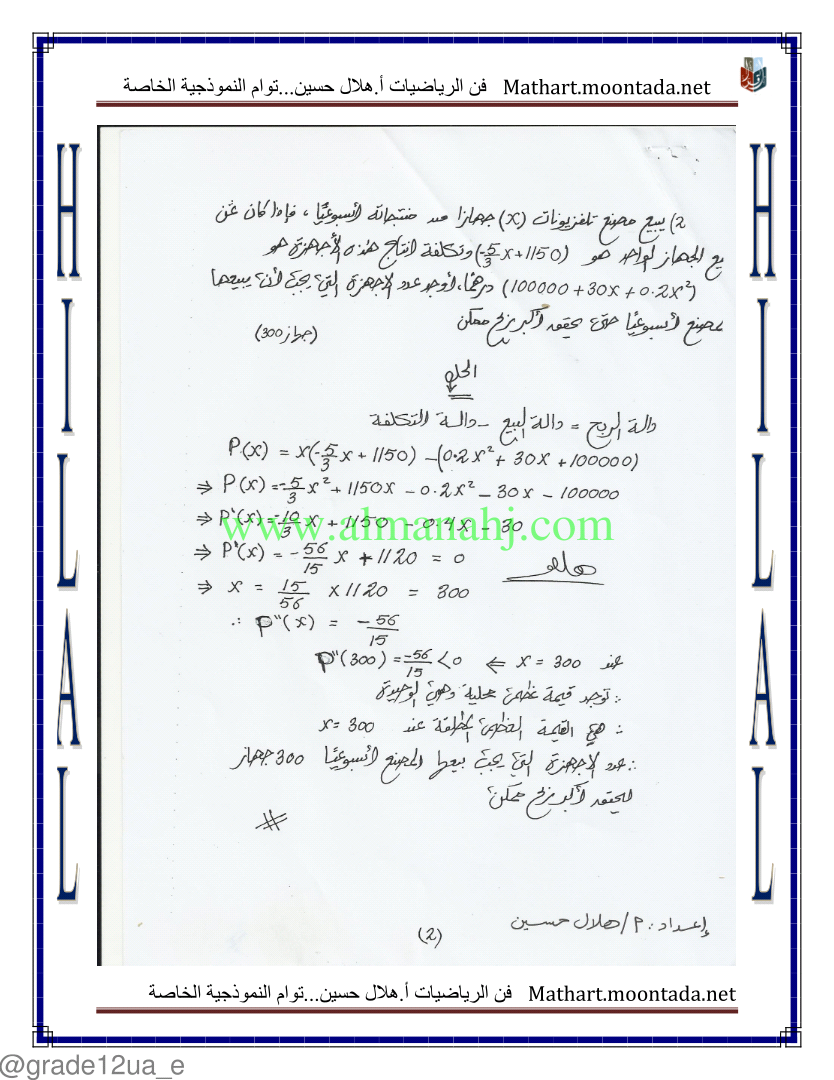 فن الرياضيات أ.هلال حسين...توام النموذجية الخاصة Mathart.moontada.net
HILAL
HILAL
2) يبيع مصنع تلفزيونات (x) جهازا من منتجاته أسبوعيًا ، فإذا كان ثمن
بيع الجهاز الواحد هو (-5/3 x + 1150) وتكلفة انتاج هذه الأجهزة هو
(100000 + 30x + 0.2x²) درهمًا، أوجد عدد الاجهزة التي يجب أن يبيعها
المصنع أسبوعيًا حتى يحقق أكبر ربح ممكن (300 جهاز)
الحل
دالة الربح = دالة البيع - دالة التكلفة
P(x) = x(-5/3 x + 1150) - (0.2x² + 30x + 100000)
⇒ P(x) = -5/3 x² + 1150x - 0.2x² - 30x - 100000
⇒ P'(x) = -10/3 x + 1150 - 0.4x - 30
www.almanahj.com
⇒ P'(x) = -56/15 x + 1120 = 0
⇒ x = 15/56 x 1120 = 300
∴ P''(x) = -56/15
عند x = 300 ⇐ P''(300) = -56/15 < 0
∴ توجد قيمة عظمى محلية وهي الوحيدة
∴ هي القيمة العظمى المطلقة عند x = 300
∴ عدد الاجهزة التي يجب بيعها المصنع أسبوعيًا 300 جهاز
ليحقق أكبر ربح ممكن
إعداد : م/ هلال حسين
(2)
فن الرياضيات أ.هلال حسين...توام النموذجية الخاصة Mathart.moontada.net
@grade12ua_e